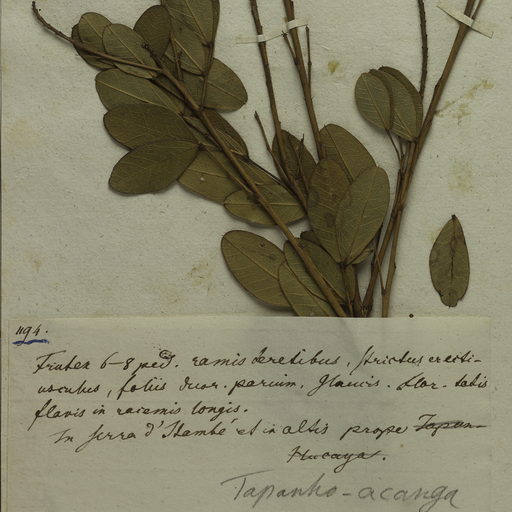 1194.
Frutex 6-8 ped. ramis teretibus, strictus, erecti-
usculus, foliis duor. parium, glaucis. Flor. latis
flavis in racemis longis.
In serra d'Itambé et in altis prope Tapan-
Hucaya.
Tapanho-acanga